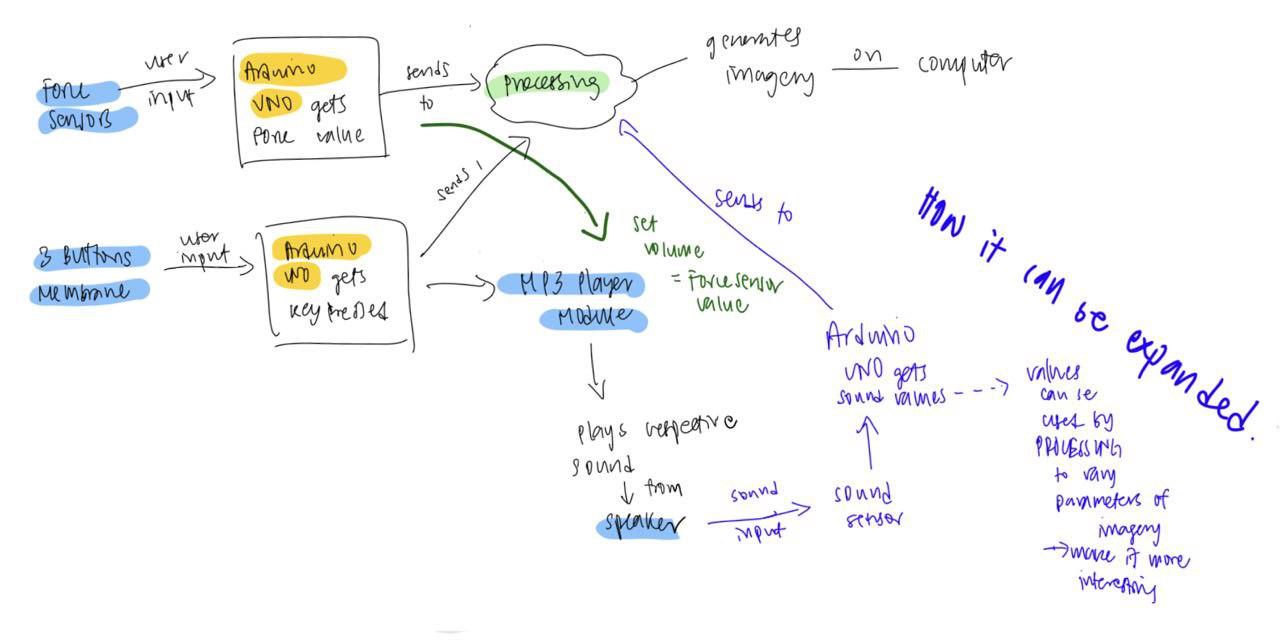 Force
sensors
user
input
Arduino
UNO gets
Force value
sends
to
Processing
generates
imagery
on
computer
3 Buttons
Membrane
user
input
Arduino
UNO gets
key presses
sends
MP3 Player
Module
set
volume
= Force sensor
value
plays respective
sound
from
speaker
sound
input
sound
sensor
Arduino
UNO gets
sound values
sends to
values
can be
used by
PROCESSING
to vary
parameters of
imagery
→ make it more
interesting
How it can be expanded.